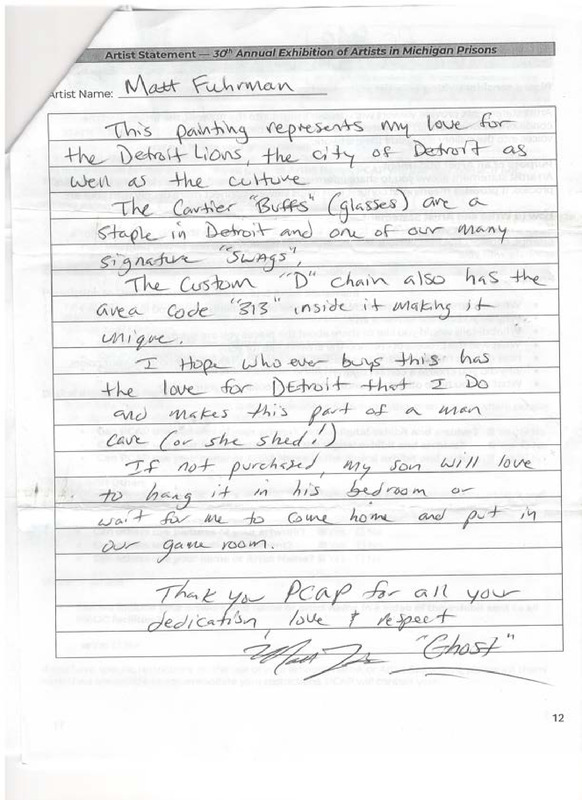 Artist Statement — 30th Annual Exhibition of Artists in Michigan Prisons
Artist Name: Matt Fuhrman
This painting represents my love for
the Detroit Lions, the city of Detroit as
well as the culture.
The Cartier "Buffs" (glasses) are a
staple in Detroit and one of our many
signature "Swags",
The Custom "D" chain also has the
area code "313" inside it making it
unique.
I Hope who ever buys this has
the love for DEtroit that I Do
and makes this part of a man
cave (or she shed!)
If not purchased, my son will love
to hang it in his bedroom or
wait for me to come home and put in
our game room.
Thank you PCAP for all your
dedication, love & respect
"Ghost"
12